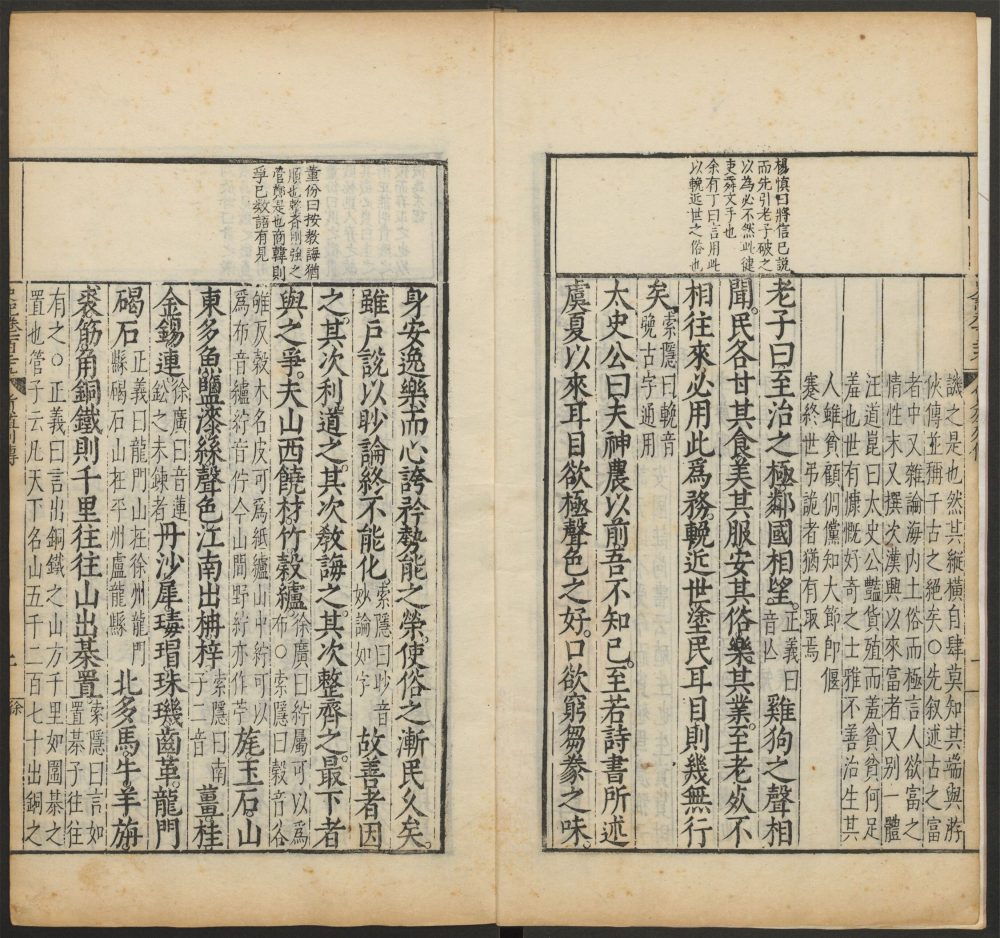 楊慎曰將信已說
而先引老子破之
以為必不然此健
吏舞文手也
余有丁曰言用此
以輓近世之俗也
譏之是也然其縱橫自肆莫知其端與游
俠傳並稱千古之絕矣○先叙述古之富
者中又雜論海內土俗而極言人欲富之
情性末又撰次漢興以來富者又別一體
汪道崑曰太史公豔貨殖而羞貧貧何足
羞也世有慷慨好奇之士雅不善治生其
人雖貧顧倜儻知大節即偃
蹇終世弔詭者猶有取焉
老子曰至治之極鄰國相望正義曰音亾雞狗之聲相
聞民各甘其食美其服安其俗樂其業至老死不
相往來必用此爲務輓近世塗民耳目則幾無行
矣索隱曰輓音晚古字通用
太史公曰夫神農以前吾不知已至若詩書所述
虞夏以來耳目欲極聲色之好口欲窮芻豢之味
董份曰按教誨猶
順也整齊則強之
管鄭是也商韓則
爭已數語有見
身安逸樂而心誇矜勢能之榮使俗之漸民久矣
雖戶說以眇論終不能化索隱曰眇音妙論如字故善者因
之其次利道之其次敎誨之其次整齊之最下者
與之爭夫山西饒材竹榖纑徐廣曰紵屬可以爲布○索隱曰榖音谷
雊反榖木名皮可爲紙纑山中紵可以爲布音纑紵音佇今山間野紵亦作苧旄玉石山
東多魚鹽漆絲聲色江南出柟梓索隱曰南子二音薑桂
金錫連徐廣曰音蓮鉛之未鍊者丹沙犀瑇瑁珠璣齒革龍門
碣石正義曰龍門山在徐州龍門縣碣石山在平州盧龍縣北多馬牛羊旃
裘筋角銅鐵則千里往往山出棊置索隱曰言如置棊子往往
有之○正義曰言出銅鐵之山方千里如圍棊之
置也管子云凡天下名山五千二百七十出銅之